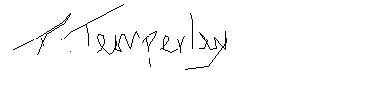 T. Temperley